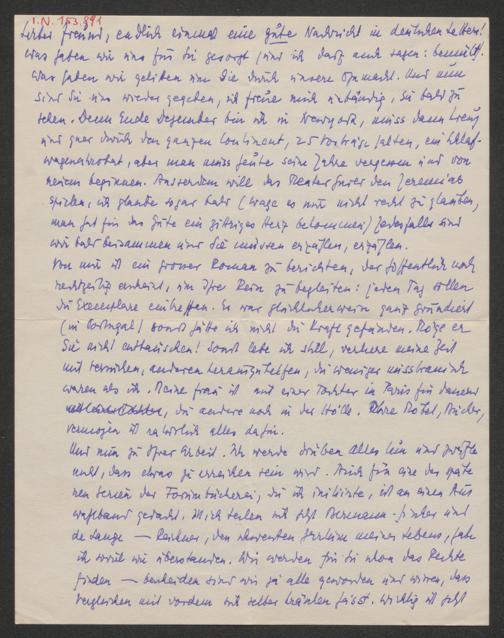 I.N. 153.891
Lieber Freund, endlich einmal eine gute Nachricht in deutschen Lettern!
Was haben wir uns für Sie gesorgt (und ich darf auch sagen: bemüht).
Was haben wir gelitten um Sie durch unsere Ohnmacht. Und nun
sind Sie uns wieder gegeben, ich freue mich unbändig, Sie bald zu
sehen. Denn Ende Dezember bin ich in Newyork, muss dann kreuz
und quer durch den ganzen Continent, 25 Vorträge halten, ein Schlaf-
wagenbewohner, aber man muss heute seine Jahre vergessen und von
neuem beginnen. Ausserdem will das Theater Ihnen den Jeremias
spielen, ich glaube sogar bald (wage es nur nicht recht zu glauben,
man hat für das Gute ein zittriges Herz bekommen) jedenfalls sind
wir bald beisammen und Sie müssen erzählen, erzählen.
Von mir ist ein grosser Roman zu berichten, der hoffentlich noch
rechtzeitig erscheint, um Ihre Reise zu begleiten: jeden Tag sollen
die Exemplare eintreffen. Er war glücklicherweise ganz grundiert
(in Portugal) sonst hätte ich nicht die Kraft gefunden. Möge er
Sie nicht enttäuschen! Sonst lebe ich still, verliere meine Zeit
mit Versuchen, anderen herauszuhelfen, die weniger misstrauisch
waren als ich. Meine Frau ist mit einer Tochter in Paris für dauernd
, die andere noch in der Hölle. Möbel, Bücher,
Vermögen ist natürlich alles dahin.
Und nun zu Ihrer Arbeit. Ich werde drüben Alles tun und zweifle
nicht, dass etwas zu erreichen sein wird. Auch für eine der späte
ren Serien der Forumbücherei, die ich initiierte, ist an einen Aus
wahlband gedacht. Mich teilen mit jetzt Bermann-Fischer und
de Lange — Reichner, den schwersten Irrtum meines Lebens, habe
ich soviel wie überstanden. Wir werden für Sie schon das Rechte
finden — bescheiden sind wir ja alle geworden und wissen, dass
Vergleichen mit vordem mit selber kränken heisst. Wichtig ist jetzt